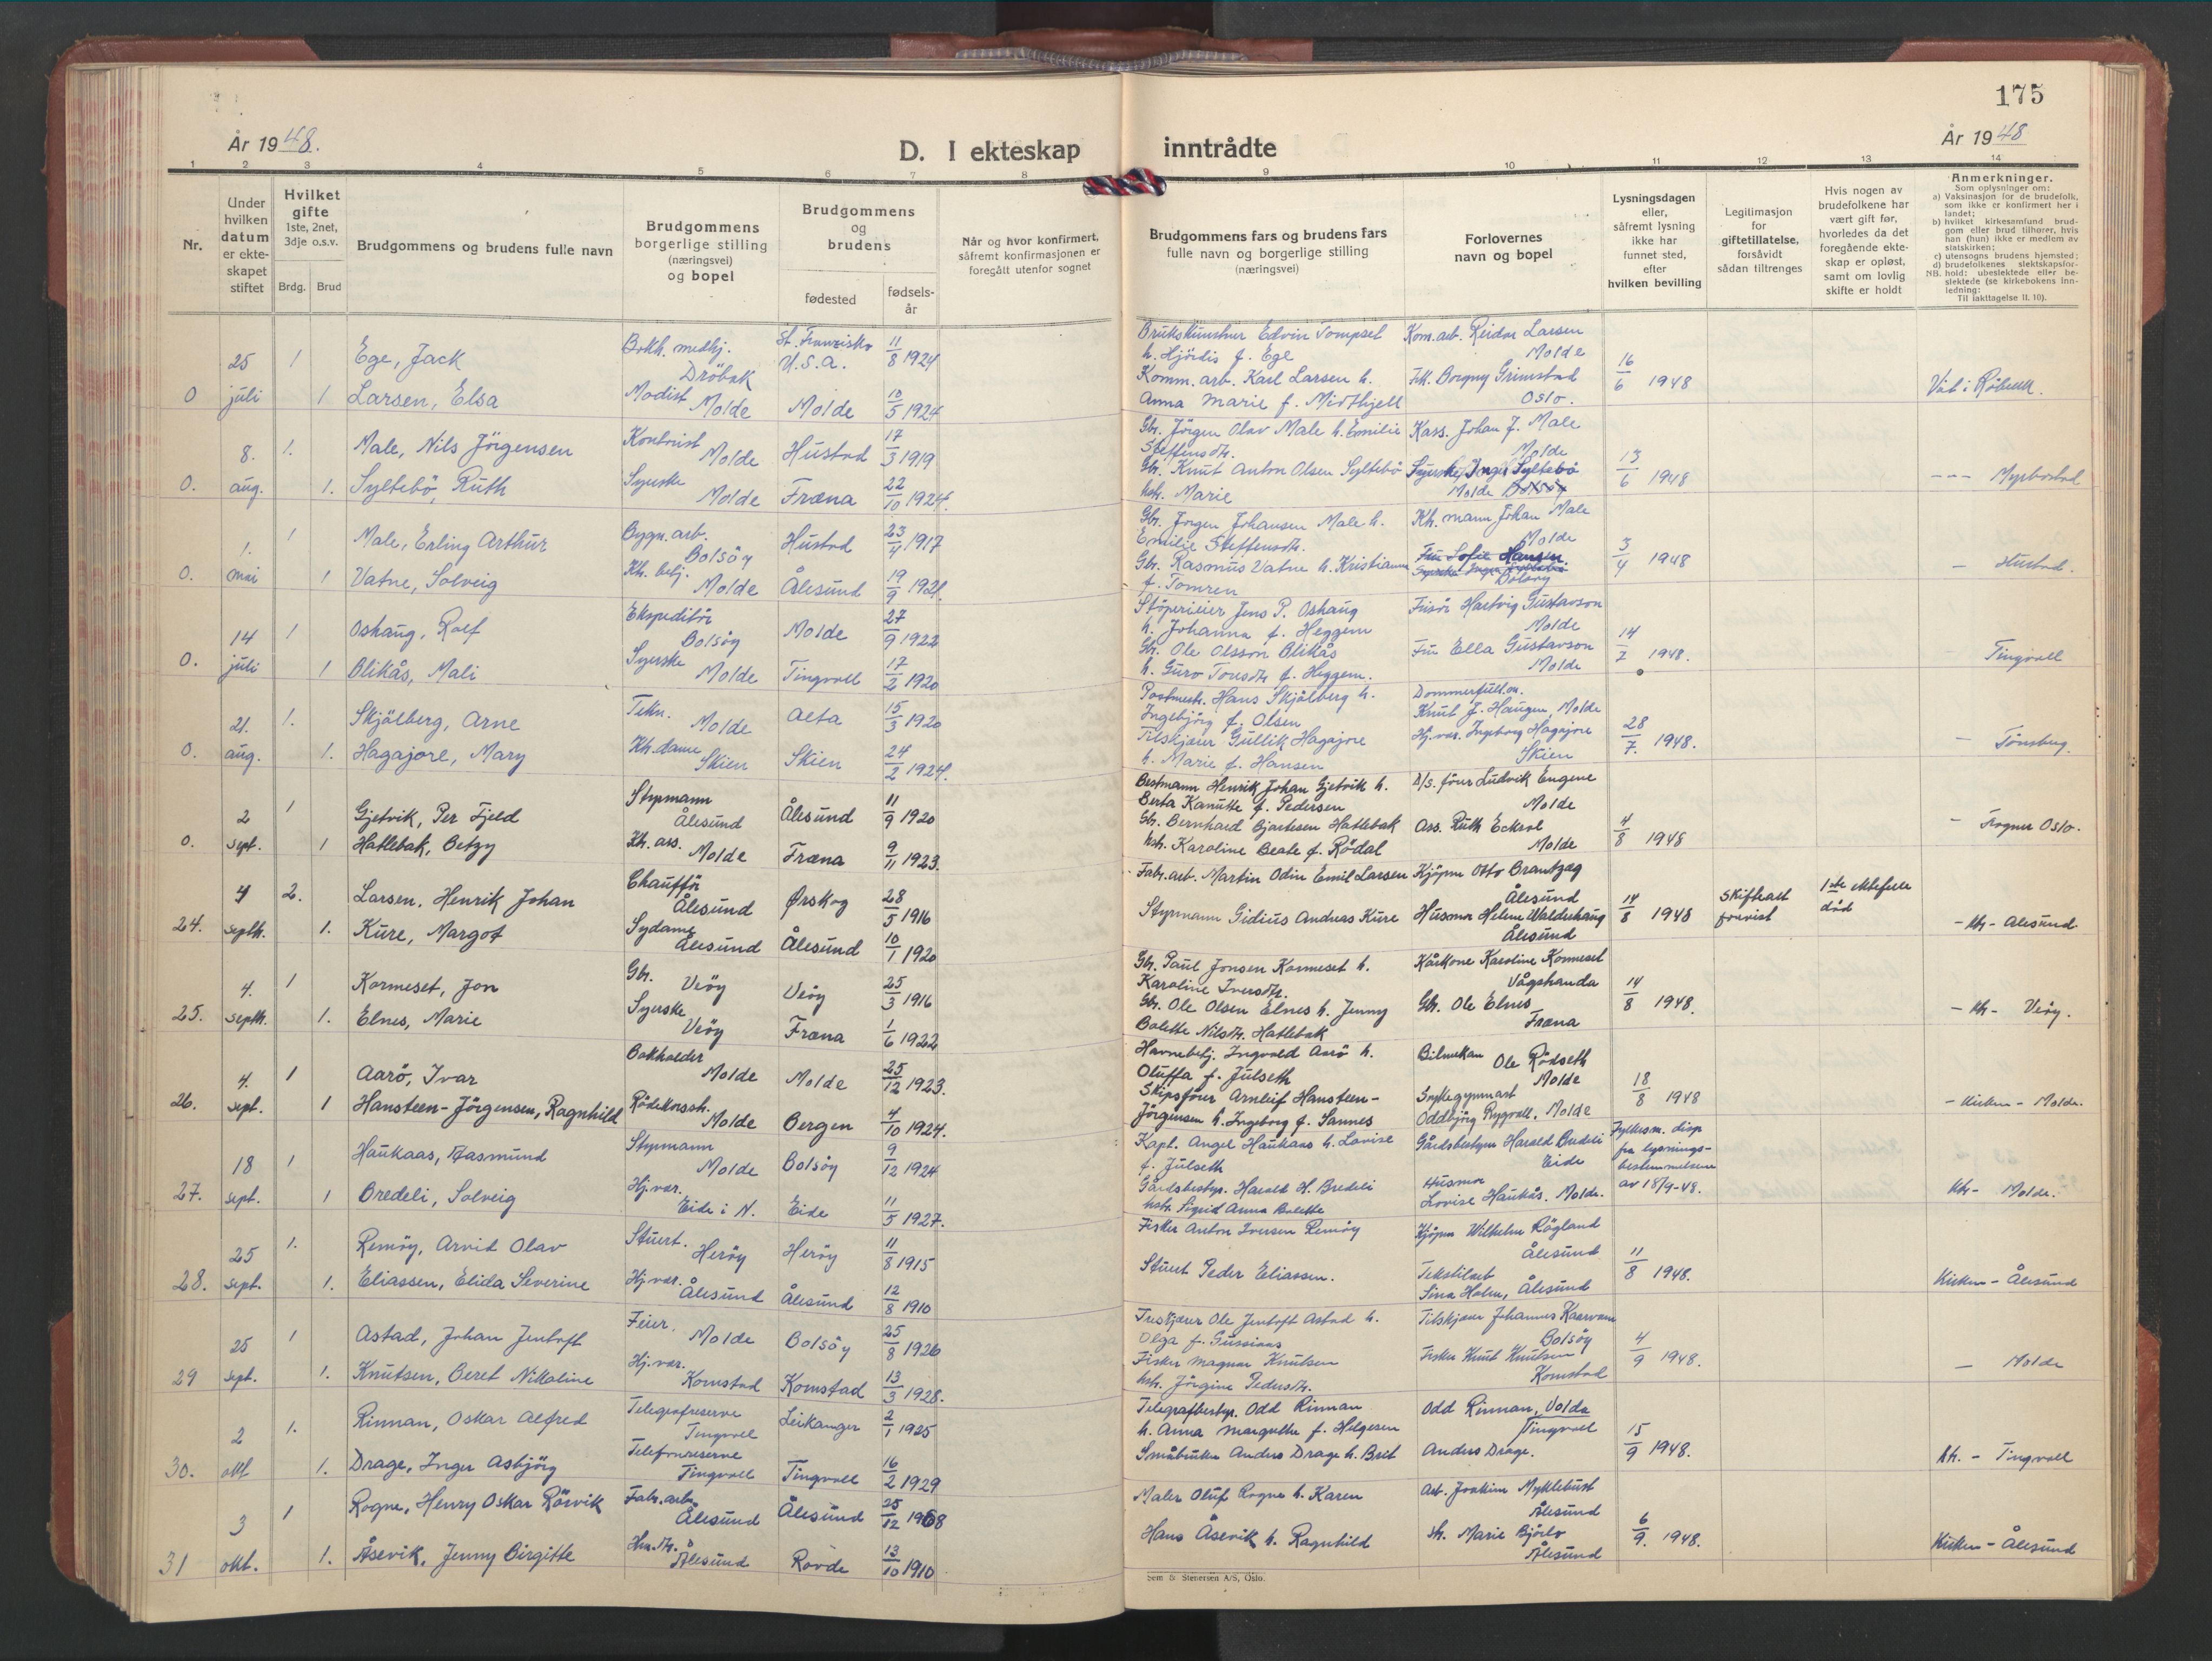 175
År 1948.
D. I ekteskap inntrådte
År 1948
1 2 3 4 5 6 7 8 9 10 11 12 13 14
Nr.
Under hvilken datum er ekteskapet stiftet
Hvilket gifte 1ste, 2net, 3dje o.s.v.
Brdg. Brud
Brudgommens og brudens fulle navn
Brudgommens borgerlige stilling (næringsvei) og bopel
Brudgommens og brudens
fødested
fødselsår
Når og hvor konfirmert, såfremt konfirmasjonen er foregått utenfor sognet
Brudgommens fars og brudens fars fulle navn og borgerlige stilling (næringsvei)
Forlovernes navn og bopel
Lysningsdagen eller, såfremt lysning ikke har funnet sted, efter hvilken bevilling
Legitimasjon for giftetillatelse, forsåvidt sådan tiltrenges
Hvis nogen av brudefolkene har vært gift før, hvorledes da det foregående ekteskap er opløst, samt om lovlig skifte er holdt
Anmerkninger.
Som oplysninger om:
a) Vaksinasjon for de brudefolk, som ikke er konfirmert her i landet;
b) hvilket kirkesamfund brudgom eller brud tilhører, hvis han (hun) ikke er medlem av statskirken;
c) utensogns brudens hjemsted;
d) brudefolkenes slektskapsforhold; ubeslektede eller beslektede (se kirkebokens Innledning:
NB. Til iakttagelse II. 10).
25 1 Ege, Jack
Dröbak U.S.A. 11/8 1924
0 juli 1 Larsen, Elsa Modist Molde Molde 10/5 1924
Edvin Tompset Kom.arb. Reidar Larsen
h. Hjördis f. Ege Molde
Komm. arb. Karl Larsen h. Frk. Borgny Grimstad 16/6 1948
Anna Marie f. Midthjell Oslo.
8. 1. Male, Nils Jörgensen Kontorist Molde Hustad 17/3 1919
0. aug. 1. Syltebö, Ruth Syerske Molde Fræna 22/10 1924.
Gbr. Jörgen Olav Male h. Emilie Kass. Johan J. Male
Steffensdtr. Molde
Gbr. Knut Anton Olsen Syltebö Syerske Inger Syltebö 13/6 1948 Myrbostad
hstr. Marie Molde Bolsöy
1. 1 Male, Erling Arthur Bygn. arb. Bolsöy Hustad 23/4 1917
0. mai 1 Vatne, Solveig Kh. betj. Molde Ålesund 19/9 1921.
Gbr. Jörgen Johansen Male h. Kh. mann Johan Male
Emilie Steffensdtr. Molde
Gbr. Rasmus Vatne h. Kristianna Fru Sofie Hansen 3/4 1948 - Hustad.
f. Tomren Bolsöy
14 1 Oshaug, Rolf Ekspeditör Bolsöy Molde 27/9 1922
0. juli 1 Blikås, Mali Syerske Molde Tingvoll 17/2 1920
Støperieier Jens P. Oshaug Frisör Hartvig Gustavson
h. Johanna f. Heggem Molde
Gbr. Ole Olsson Blikås Fru Ella Gustavson 14/7 1948. - Tingvoll
h. Guro Toresdtr. f. Heggem. Molde
21. 1. Skjölberg, Arne Tekn. Molde Alta 15/3 1920
0. aug. 1. Hagajore, Mary Kh. dame Skien Skien 24/2 1924.
Postmestr. Hans Skjölberg h. Dommerfullm.
Ingebjörg f. Olsen Knut J. Haugen, Molde
Tilskjærer Gullik Hagajore Hj. vær. Ingeborg Hagajore 28/7. 1948. - Tönsberg.
h. Marie f. Hansen Skien
2 1 Gjetvik, Per Fjeld Styrmann Ålesund Ålesund 11/9 1920
0. sept. 1 Hatlebak, Betzy Kh. ass. Molde Fræna 9/11 1923.
Bestmann Henrik Johan Gjetvik h. D/s. förer Ludvik Eugene
Berta Kanutte f. Pedersen Molde
Gbr. Bernhard Bjartesen Hatlebak Ass. Ruth Eckrol 4/8 1948 - Frogner Oslo.
hstr. Karoline Beate f. Rödal Molde
4 2. Larsen, Henrik Johan Chaufför Ålesund Ørskog 28/5 1916
24. septbr. 1. Kure, Margot Sydame Ålesund Ålesund 10/1 1920
Fabr. arb. Martin Odin Emil Larsen Kjöpm Otto Brantzæg
Ålesund
Styrmann Gidius Andreas Kure Husmor Helene Waldehaug 14/8 1948 Skifteatt forevist 1ste ektefelle død - kh - Ålesund.
Ålesund
4. 1 Kormeset, Jon Gbr. Veöy Veöy 25/3 1916
25. septbr. 1. Elnes, Marie Syerske Veöy Fræna 1/6 1922
Gbr. Paul Jonsen Kormeset h. Kårkone Karoline Kormeset
Karoline Iversdtr. Vågstranda
Gbr. Ole Olsen Elnes h. Jenny Gbr. Ole Elnes 14/8 1948. - kh - Veöy.
Bolette Nilsdtr. Hatlebak Fræna
4. 1 Aarö, Ivar Bokholder Molde Molde 25/12 1923.
26. sept. 1 Hansteen-Jörgensen, Ragnhild Rödekorsstr. Molde Bergen 4/10 1924.
Havnebetj. Ingvald Aarö h. Bilmekan Ole Rödseth
Oluffa f. Julseth Molde
Skipsförer Arnleif Hansteen- Sykegymnast 18/8 1948 - Kirken - Molde.
Jörgensen h. Ingeborg f. Sannes Oddbjörg Rygvoll, Molde
18 1 Haukaas, Aasmund Styrmann Molde Bolsöy 9/12 1924
27. sept. 1 Bredeli, Solveig Hj. vær. Eide i N. Eide 11/5 1927.
Kapt. Angel Haukaas h. Lovise Gårdsbestyrer Harald Bredeli Fylkesm. disp
f. Julseth Eide fra lysnings-
Gårdsbestyr. Harald H. Bredeli Husmor bestemmelsene
hstr. Sigrid Anna Bolette Lovise Haukås, Molde. av 18/9-48. kh - Molde.
25 1. Remöy, Arvid Olav Stuert. Heröy Heröy 11/8 1915
28. sept. 1. Eliassen, Elida Severine Hj. vær. Ålesund Ålesund 12/8 1910
Fisker Anton Iversen Remöy Kjöpm Wilhelm Rögland
Ålesund
Stuert Peder Eliassen. Tekstilarb 11/8 1948. Kirken - Ålesund
Sina Holm, Ålesund
25 1 Astad, Johan Jentoft Feier. Molde Bolsöy 25/8 1926
29 sept. 1. Knutsen, Beret Nikoline Hj. vær. Kornstad Kornstad 13/3 1928.
Treskjærer Ole Jentoft Astad h. Tilskjærer Johannes
Olga f. Gussiaas Bolsöy
Fisker Magnar Knutsen Fisker Knut Knutsen 4/9 1948. - Molde
hstr. Jörgine Pedersdtr. Kornstad
2 1. Rinnan, Oskar Alfred Telegrafreserve Tingvoll Leikanger 2/1 1925
30. okt 1. Drage, Inger Asbjörg Telefonreserve Tingvoll Tingvoll 16/2 1929
Telegrafbestyr. Odd Rinnan Odd Rinnan, Volda
h. Anna Margrethe f. Helgesen Tingvoll
Småbruker Anders Drage h. Brit Anders Drage. 15/9 1948. kh. - Tingvoll
3 1 Rogne, Henry Oskar Rörvik Fabr. arb. Ålesund Ålesund 25/12 1908
31 okt. 1. Åsevik, Jenny Birgitte Ålesund Rovde 13/10 1910
Maler Oluf Rogne h. Karen Arb. Joakim Myklebust
Ålesund
Hans Åsevik h. Ragnhild Marie Bjørlo 6/9. 1948. Kirken - Ålesund
Ålesund
Sem & Stenersen A/S, Oslo.